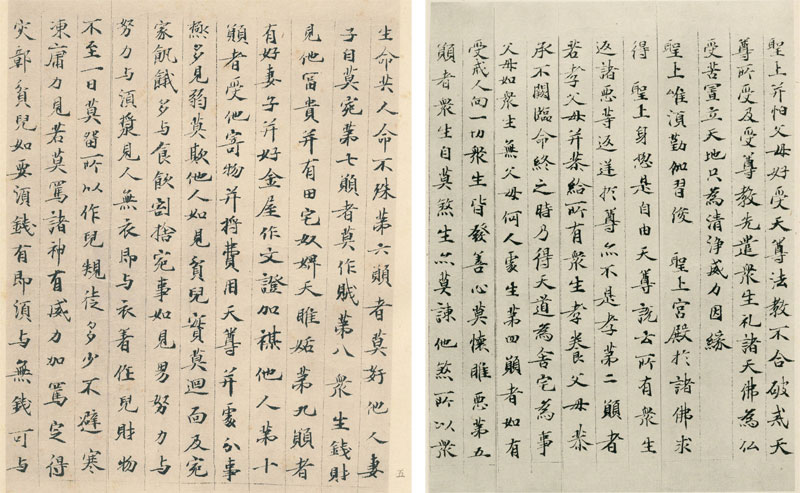 聖上并怕父母好受天尊法教不合破戒天
尊所受及受尊教先遣衆生礼諸天佛為仏
受苦置立天地只為清淨威力因緣
聖上唯湏勤伽習俊　聖上宮殿於諸佛求
得　聖上身惣是自由天尊說云所有衆生
返諸惡等返逆於尊亦不是孝第二願者
若孝父母并恭給所有衆生孝養父母恭
承不闕臨命終之時乃得天道為舍宅為事
父母如衆生無父母何人處生第四願者如有
受戒人向一切衆生皆發善心莫懷睢惡第五
願者衆生自莫煞生亦莫諫他煞所以衆
生命共人命不殊第六願者莫奸他人妻
子自莫宛第七願者莫作賊第八衆生錢財
見他富貴并有田宅奴婢天睢姤第九願者
有好妻子并好金屋作文證加禖他人第十
願者受他寄物并將費用天尊并處分事
極多見弱莫欺他人如見貧兒實莫迴面及宛
家飢餓多与食飲割捨宛事如見男努力与
努力与湏漿見人無衣即与衣着作兒財物
不至一日莫留所以作兒規徒多少不避寒
凍庸力見若莫罵諸神有威力加罵定得
灾鄣貧兒如要湏錢有即湏与無錢可与
五